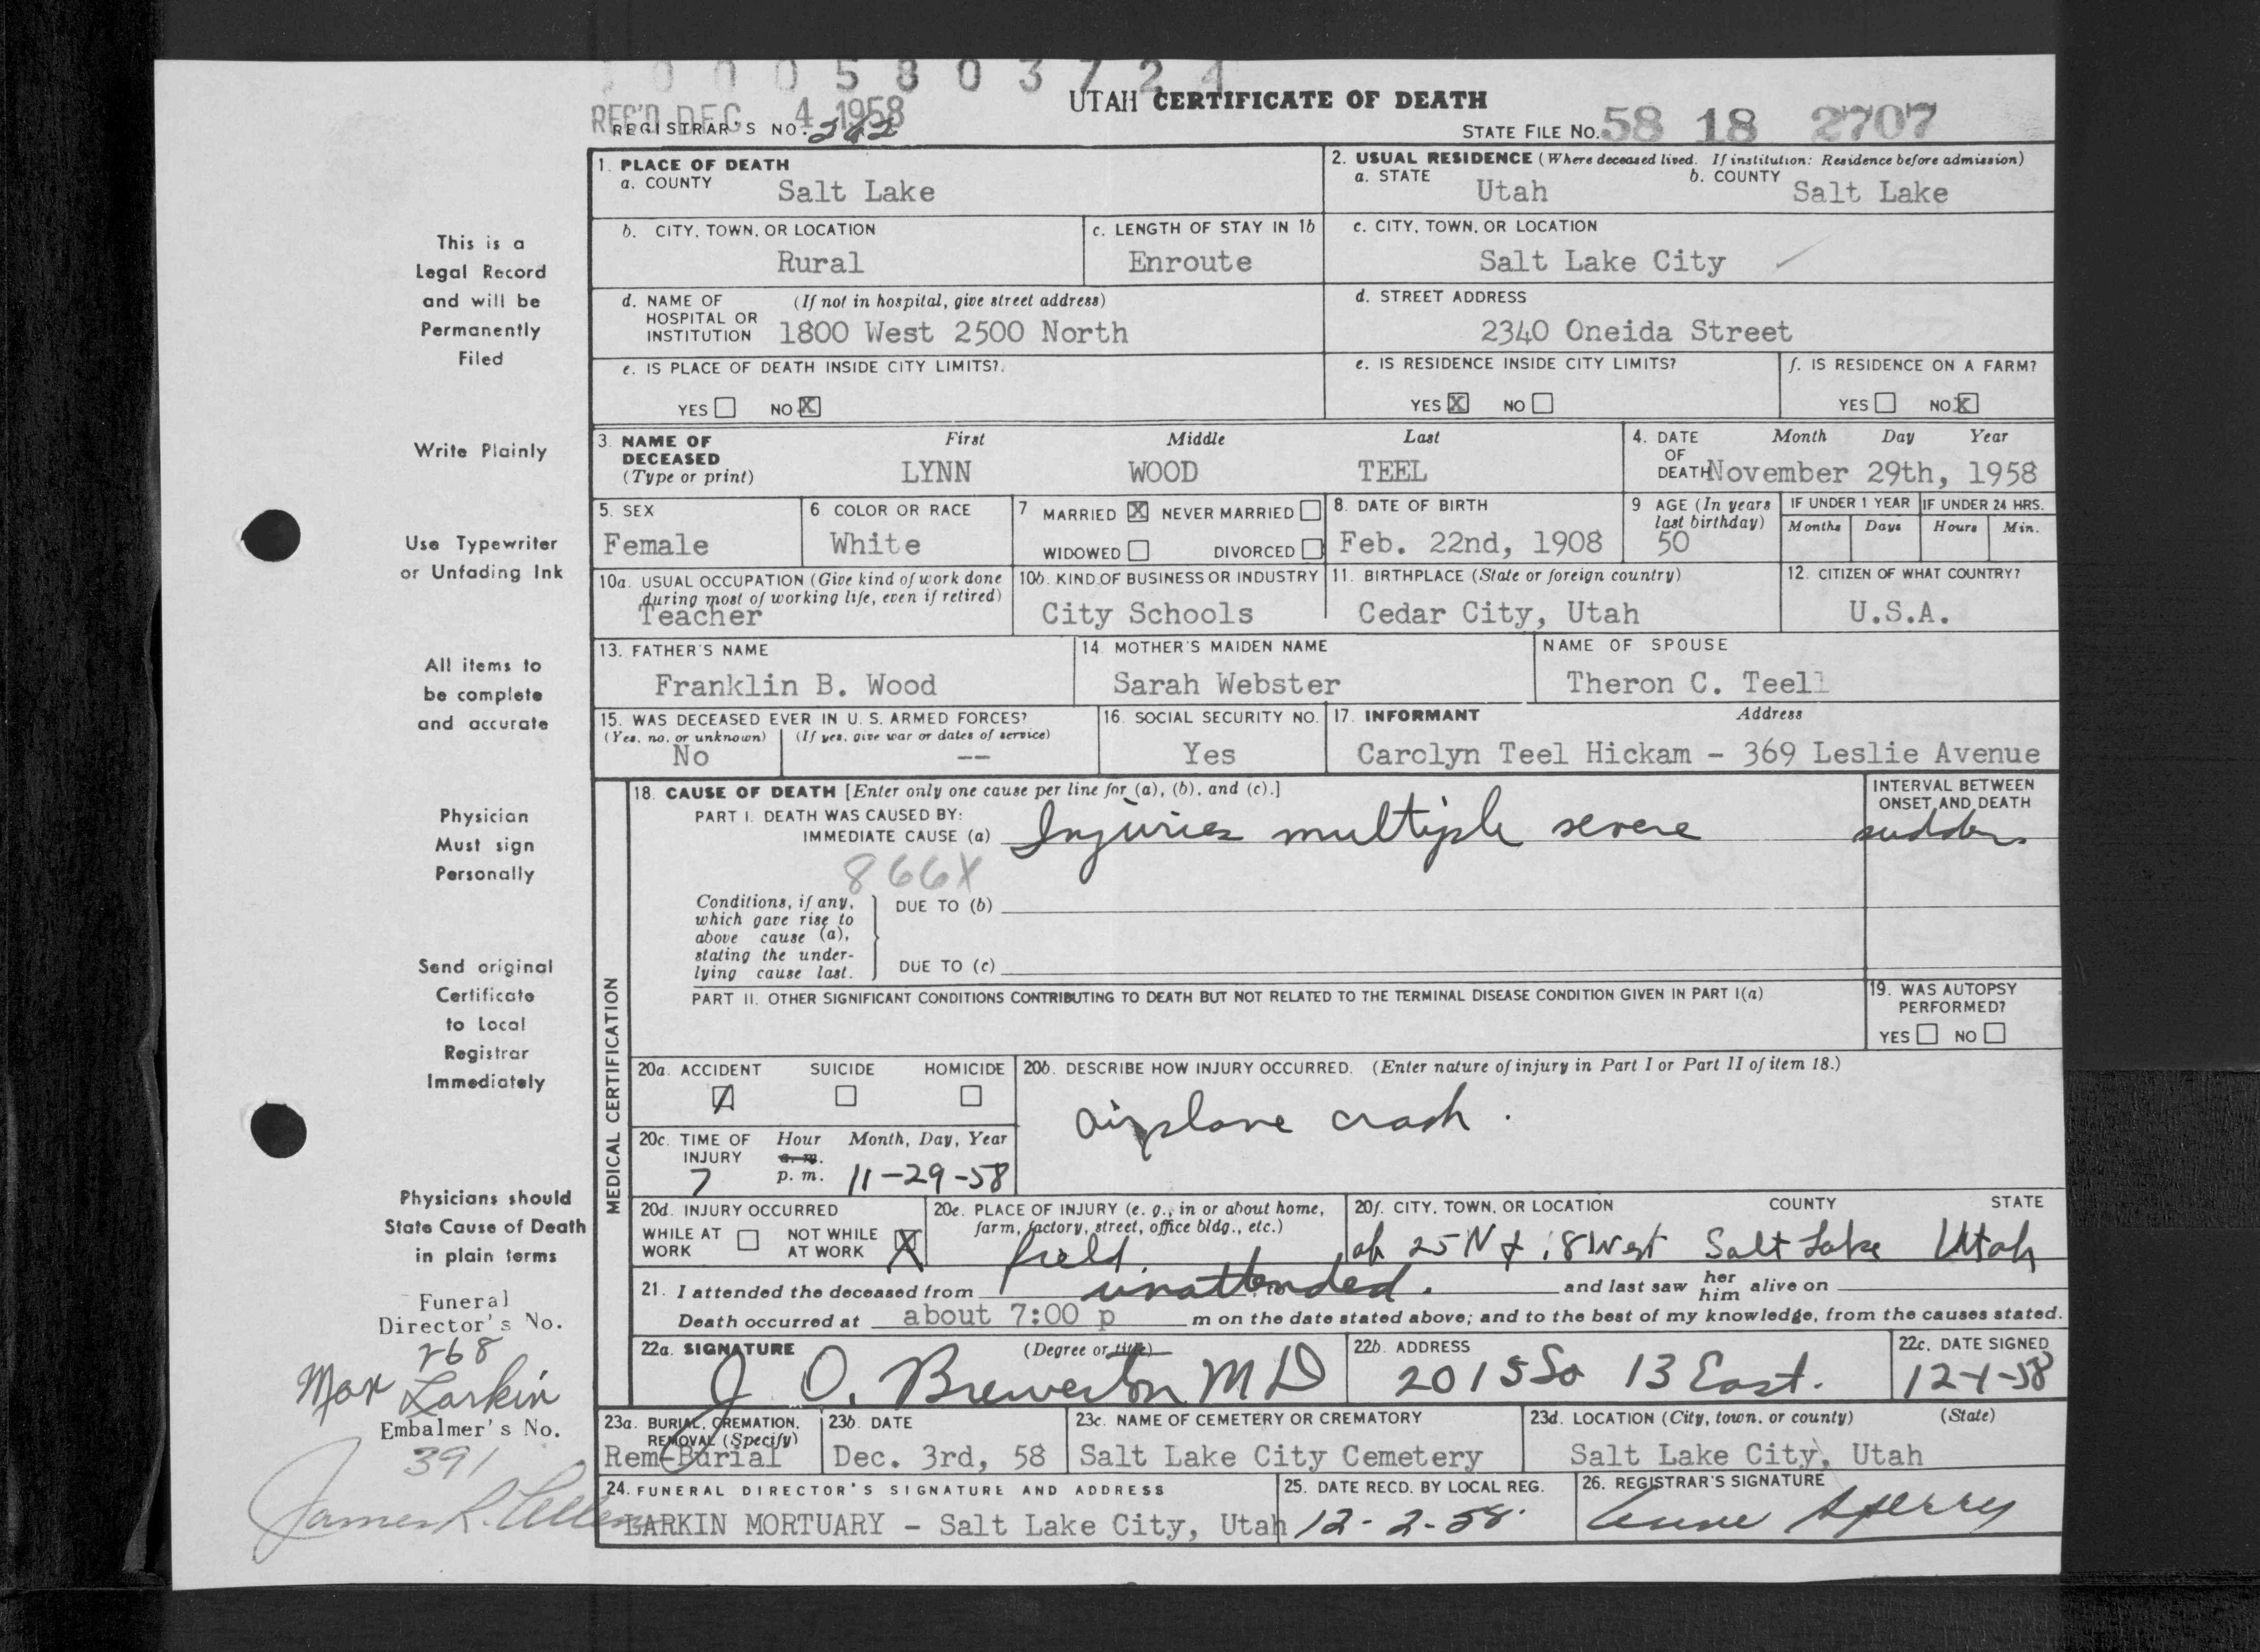 0 0 0 5 8 0 3 7 2 4
REC'D DEC 4 1958
UTAH CERTIFICATE OF DEATH
REGISTRAR'S NO.
STATE FILE NO. 58 18 2707
1. PLACE OF DEATH
a. COUNTY Salt Lake
2. USUAL RESIDENCE (Where deceased lived. If institution: Residence before admission)
a. STATE Utah b. COUNTY Salt Lake
b. CITY, TOWN, OR LOCATION Rural
c. LENGTH OF STAY IN 1b Enroute
c. CITY, TOWN, OR LOCATION Salt Lake City
d. NAME OF HOSPITAL OR INSTITUTION (If not in hospital, give street address) 1800 West 2500 North
d. STREET ADDRESS 2340 Oneida Street
e. IS PLACE OF DEATH INSIDE CITY LIMITS?
YES NO X
e. IS RESIDENCE INSIDE CITY LIMITS?
YES X NO
f. IS RESIDENCE ON A FARM?
YES NO X
3. NAME OF DECEASED (Type or print)
First Middle Last
LYNN WOOD TEEL
4. DATE OF DEATH Month Day Year
November 29th, 1958
5. SEX Female
6. COLOR OR RACE White
7 MARRIED X NEVER MARRIED
WIDOWED DIVORCED
8. DATE OF BIRTH Feb. 22nd, 1908
9 AGE (In years last birthday) 50
IF UNDER 1 YEAR Months Days
IF UNDER 24 HRS. Hours Min.
10a. USUAL OCCUPATION (Give kind of work done during most of working life, even if retired) Teacher
10b. KIND OF BUSINESS OR INDUSTRY City Schools
11. BIRTHPLACE (State or foreign country) Cedar City, Utah
12. CITIZEN OF WHAT COUNTRY? U.S.A.
13. FATHER'S NAME Franklin B. Wood
14. MOTHER'S MAIDEN NAME Sarah Webster
NAME OF SPOUSE Theron C. Teell
15. WAS DECEASED EVER IN U. S. ARMED FORCES?
(Yes, no, or unknown) No
(If yes, give war or dates of service) --
16. SOCIAL SECURITY NO. Yes
17. INFORMANT Address
Carolyn Teel Hickam - 369 Leslie Avenue
MEDICAL CERTIFICATION
18. CAUSE OF DEATH [Enter only one cause per line for (a), (b), and (c).]
INTERVAL BETWEEN ONSET AND DEATH
PART I. DEATH WAS CAUSED BY:
IMMEDIATE CAUSE (a) Injuries multiple severe sudden
866X
Conditions, if any, which gave rise to above cause (a), stating the underlying cause last.
DUE TO (b)
DUE TO (c)
PART II. OTHER SIGNIFICANT CONDITIONS CONTRIBUTING TO DEATH BUT NOT RELATED TO THE TERMINAL DISEASE CONDITION GIVEN IN PART I(a)
19. WAS AUTOPSY PERFORMED?
YES NO
20a. ACCIDENT SUICIDE HOMICIDE
20b. DESCRIBE HOW INJURY OCCURRED. (Enter nature of injury in Part I or Part II of item 18.)
airplane crash.
20c. TIME OF INJURY Hour Month, Day, Year
a. m.
7 p. m. 11-29-58
20d. INJURY OCCURRED
WHILE AT WORK NOT WHILE AT WORK X
20e. PLACE OF INJURY (e. g., in or about home, farm, factory, street, office bldg., etc.)
field
20f. CITY, TOWN, OR LOCATION COUNTY STATE
25 N + 18 West Salt Lake Utah
21. I attended the deceased from unattended. and last saw her him alive on
Death occurred at about 7:00 p m on the date stated above; and to the best of my knowledge, from the causes stated.
22a. SIGNATURE (Degree or title)
J O. Brewerton M D
22b. ADDRESS
2015 So 13 East.
22c. DATE SIGNED
12-1-58
23a. BURIAL, CREMATION, REMOVAL (Specify)
Rem-Burial
23b. DATE
Dec. 3rd, 58
23c. NAME OF CEMETERY OR CREMATORY
Salt Lake City Cemetery
23d. LOCATION (City, town, or county) (State)
Salt Lake City, Utah
24. FUNERAL DIRECTOR'S SIGNATURE AND ADDRESS
LARKIN MORTUARY - Salt Lake City, Utah
25. DATE RECD. BY LOCAL REG.
12-2-58.
26. REGISTRAR'S SIGNATURE
Sperry
This is a
Legal Record
and will be
Permanently
Filed
Write Plainly
Use Typewriter
or Unfading Ink
All items to
be complete
and accurate
Physician
Must sign
Personally
Send original
Certificate
to Local
Registrar
Immediately
Physicians should
State Cause of Death
in plain terms
Funeral
Director's No.
268
Max Larkin
Embalmer's No.
391
James R.